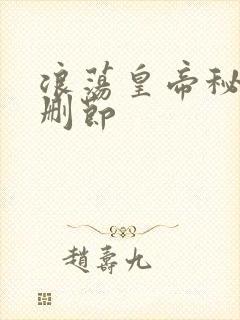 浪蕩皇帝秘
刪節
趙壽九